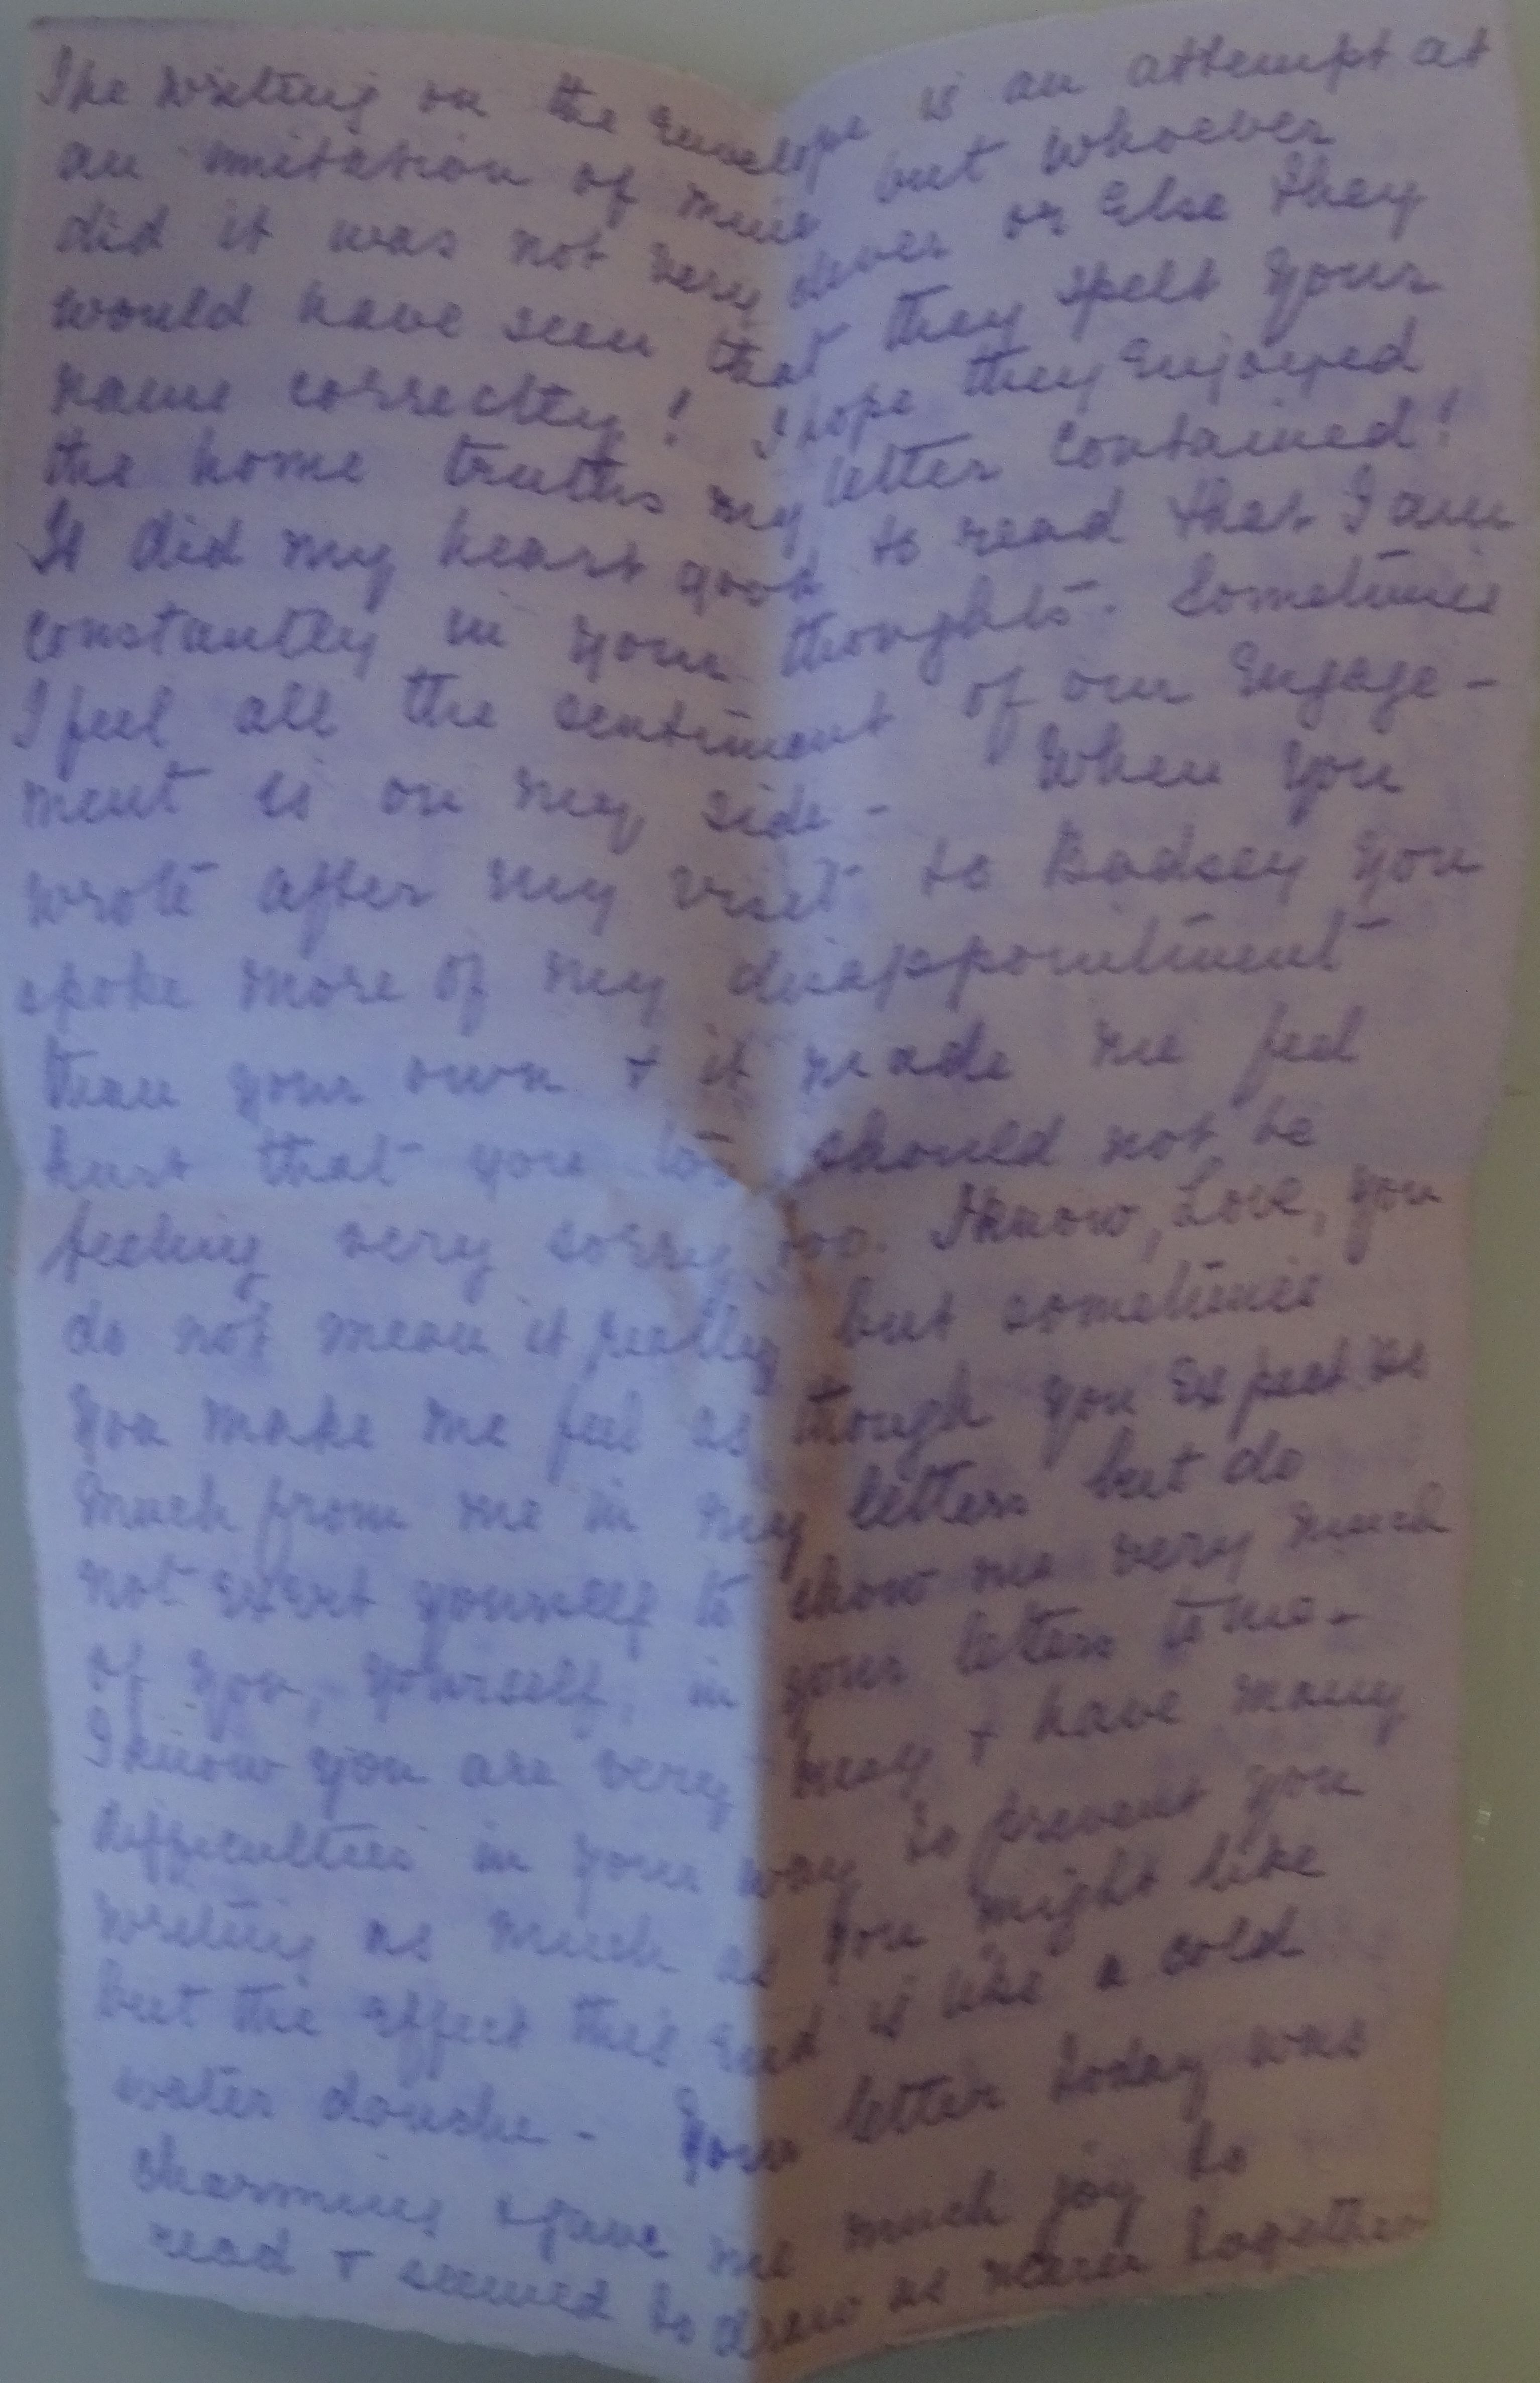 The writing on the envelope is an attempt at
an imitation of mine but whoever
did it was not very clever or else they
would have seen that they spelt your
name correctly! I hope they enjoyed
the home truths my letter contained!
It did my heart good to read that I am
constantly in your thoughts. Sometimes
I feel all the sentiment of our engage-
ment is on my side - When you
wrote after my visit to Badsey you
spoke more of my disappointment
than your own + it made me feel
hurt that you too should not be
feeling very sorry too. I know, Love, you
do not mean it really but sometimes
you make me feel as though you expect so
much from me in my letters but do
not exert yourself to show me very much
of you, yourself, in your letters to me -
I know you are very busy + have many
difficulties in your way to prevent you
writing as much as you might like
but the effect this end is like a cold
water douche - Your letter today was
charming + gave me much joy to
read + seemed to draw us nearer together